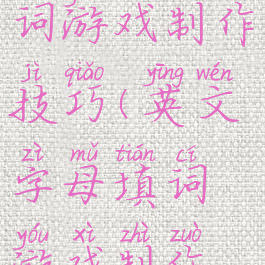 词游戏制作
jì qiǎo yīng wén
技巧(英文
zì mǔ tián cí
字母填词
yóu xì zhì zuò
游戏制作